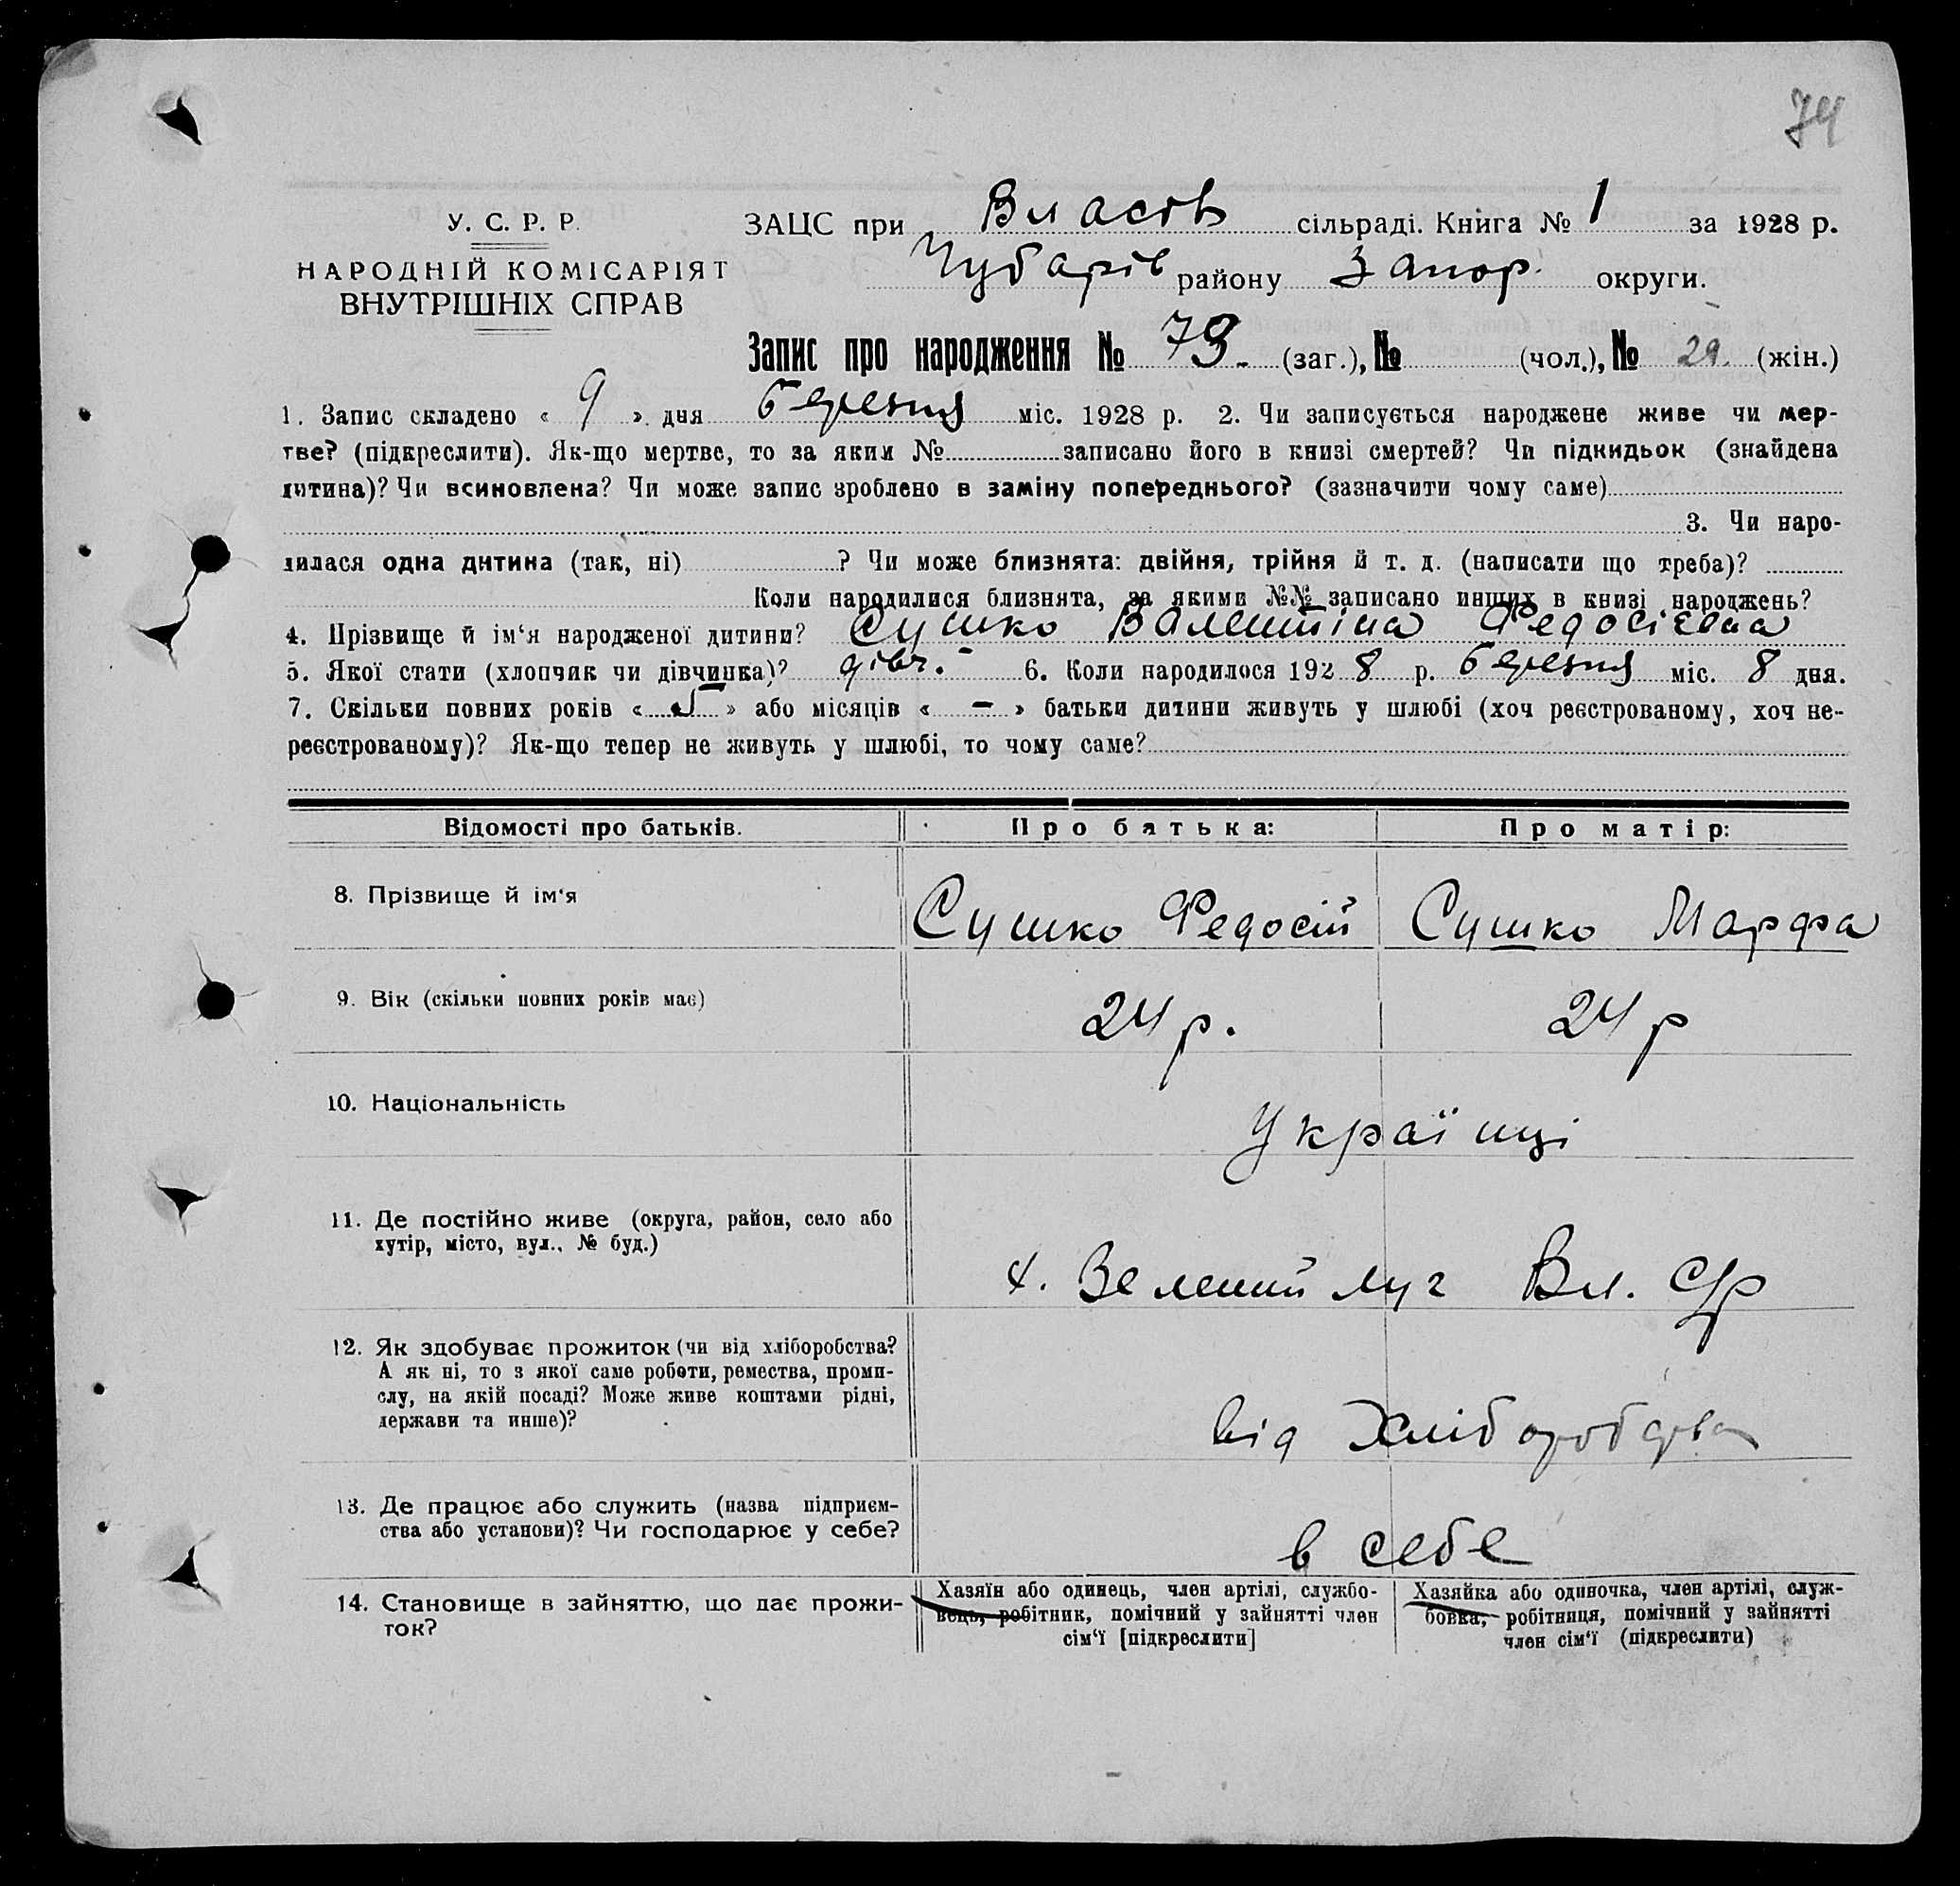 74
У. С. Р. Р.
НАРОДНІЙ КОМІСАРІЯТ
ВНУТРІШНІХ СПРАВ
ЗАЦС при Власов сільраді. Книга № 1 за 1928 р.
Чубарів району Запор. округи.
Запис про народження № 73. (заг.), № (чол.), № 29. (жін.)
1. Запис складено « 9 » дня березня міс. 1928 р. 2. Чи записується народжене живе чи мер-
тве? (підкреслити). Як-що мертве, то за яким № записано його в книзі смертей? Чи підкидьок (знайдена
дитина)? Чи всиновлена? Чи може запис зроблено в заміну попереднього? (зазначити чому саме)
3. Чи наро-
дилася одна дитина (так, ні) ? Чи може близнята: двійня, трійня й т. д. (написати що треба)?
Коли народилися близнята, за якими №№ записано инших в книзі народжень?
4. Прізвище й ім‘я народженої дитини? Сушко Валентіна Федосієвна
5. Якої стати (хлопчик чи дівчинка)? дівч. 6. Коли народилося 1928 р. березня міс. 8 дня.
7. Скільки повних років « » або місяців « – » батьки дитини живуть у шлюбі (хоч реєстрованому, хоч не-
реєстрованому)? Як-що тепер не живуть у шлюбі, то чому саме?
Відомості про батьків. Про батька: Про матір:
8. Прізвище й ім‘я Сушко Федосій Сушко Марфа
9. Вік (скільки повних років має) 24 р. 24 р
10. Національність Українці
11. Де постійно живе (округа, район, село або
хутір, місто, вул., № буд.)
х. Зелений луг Вл. С/р
12. Як здобуває прожиток (чи від хліборобства?
А як ні, то з якої саме роботи, ремества, проми-
слу, на якій посаді? Може живе коштами рідні,
держави та инше)?
від Хліборобства
13. Де працює або служить (назва підприєм-
ства або установи)? Чи господарює у себе?
в себе
14. Становище в зайняттю, що дає прожи-
ток?
Хазяїн або одинець, член артілі, службо-
вець, робітник, помічний у зайнятті член
сім‘ї [підкреслити]
Хазяйка або одиночка, член артілі, служ-
бовка, робітниця, помічний у зайнятті
член сім‘ї (підкреслити)